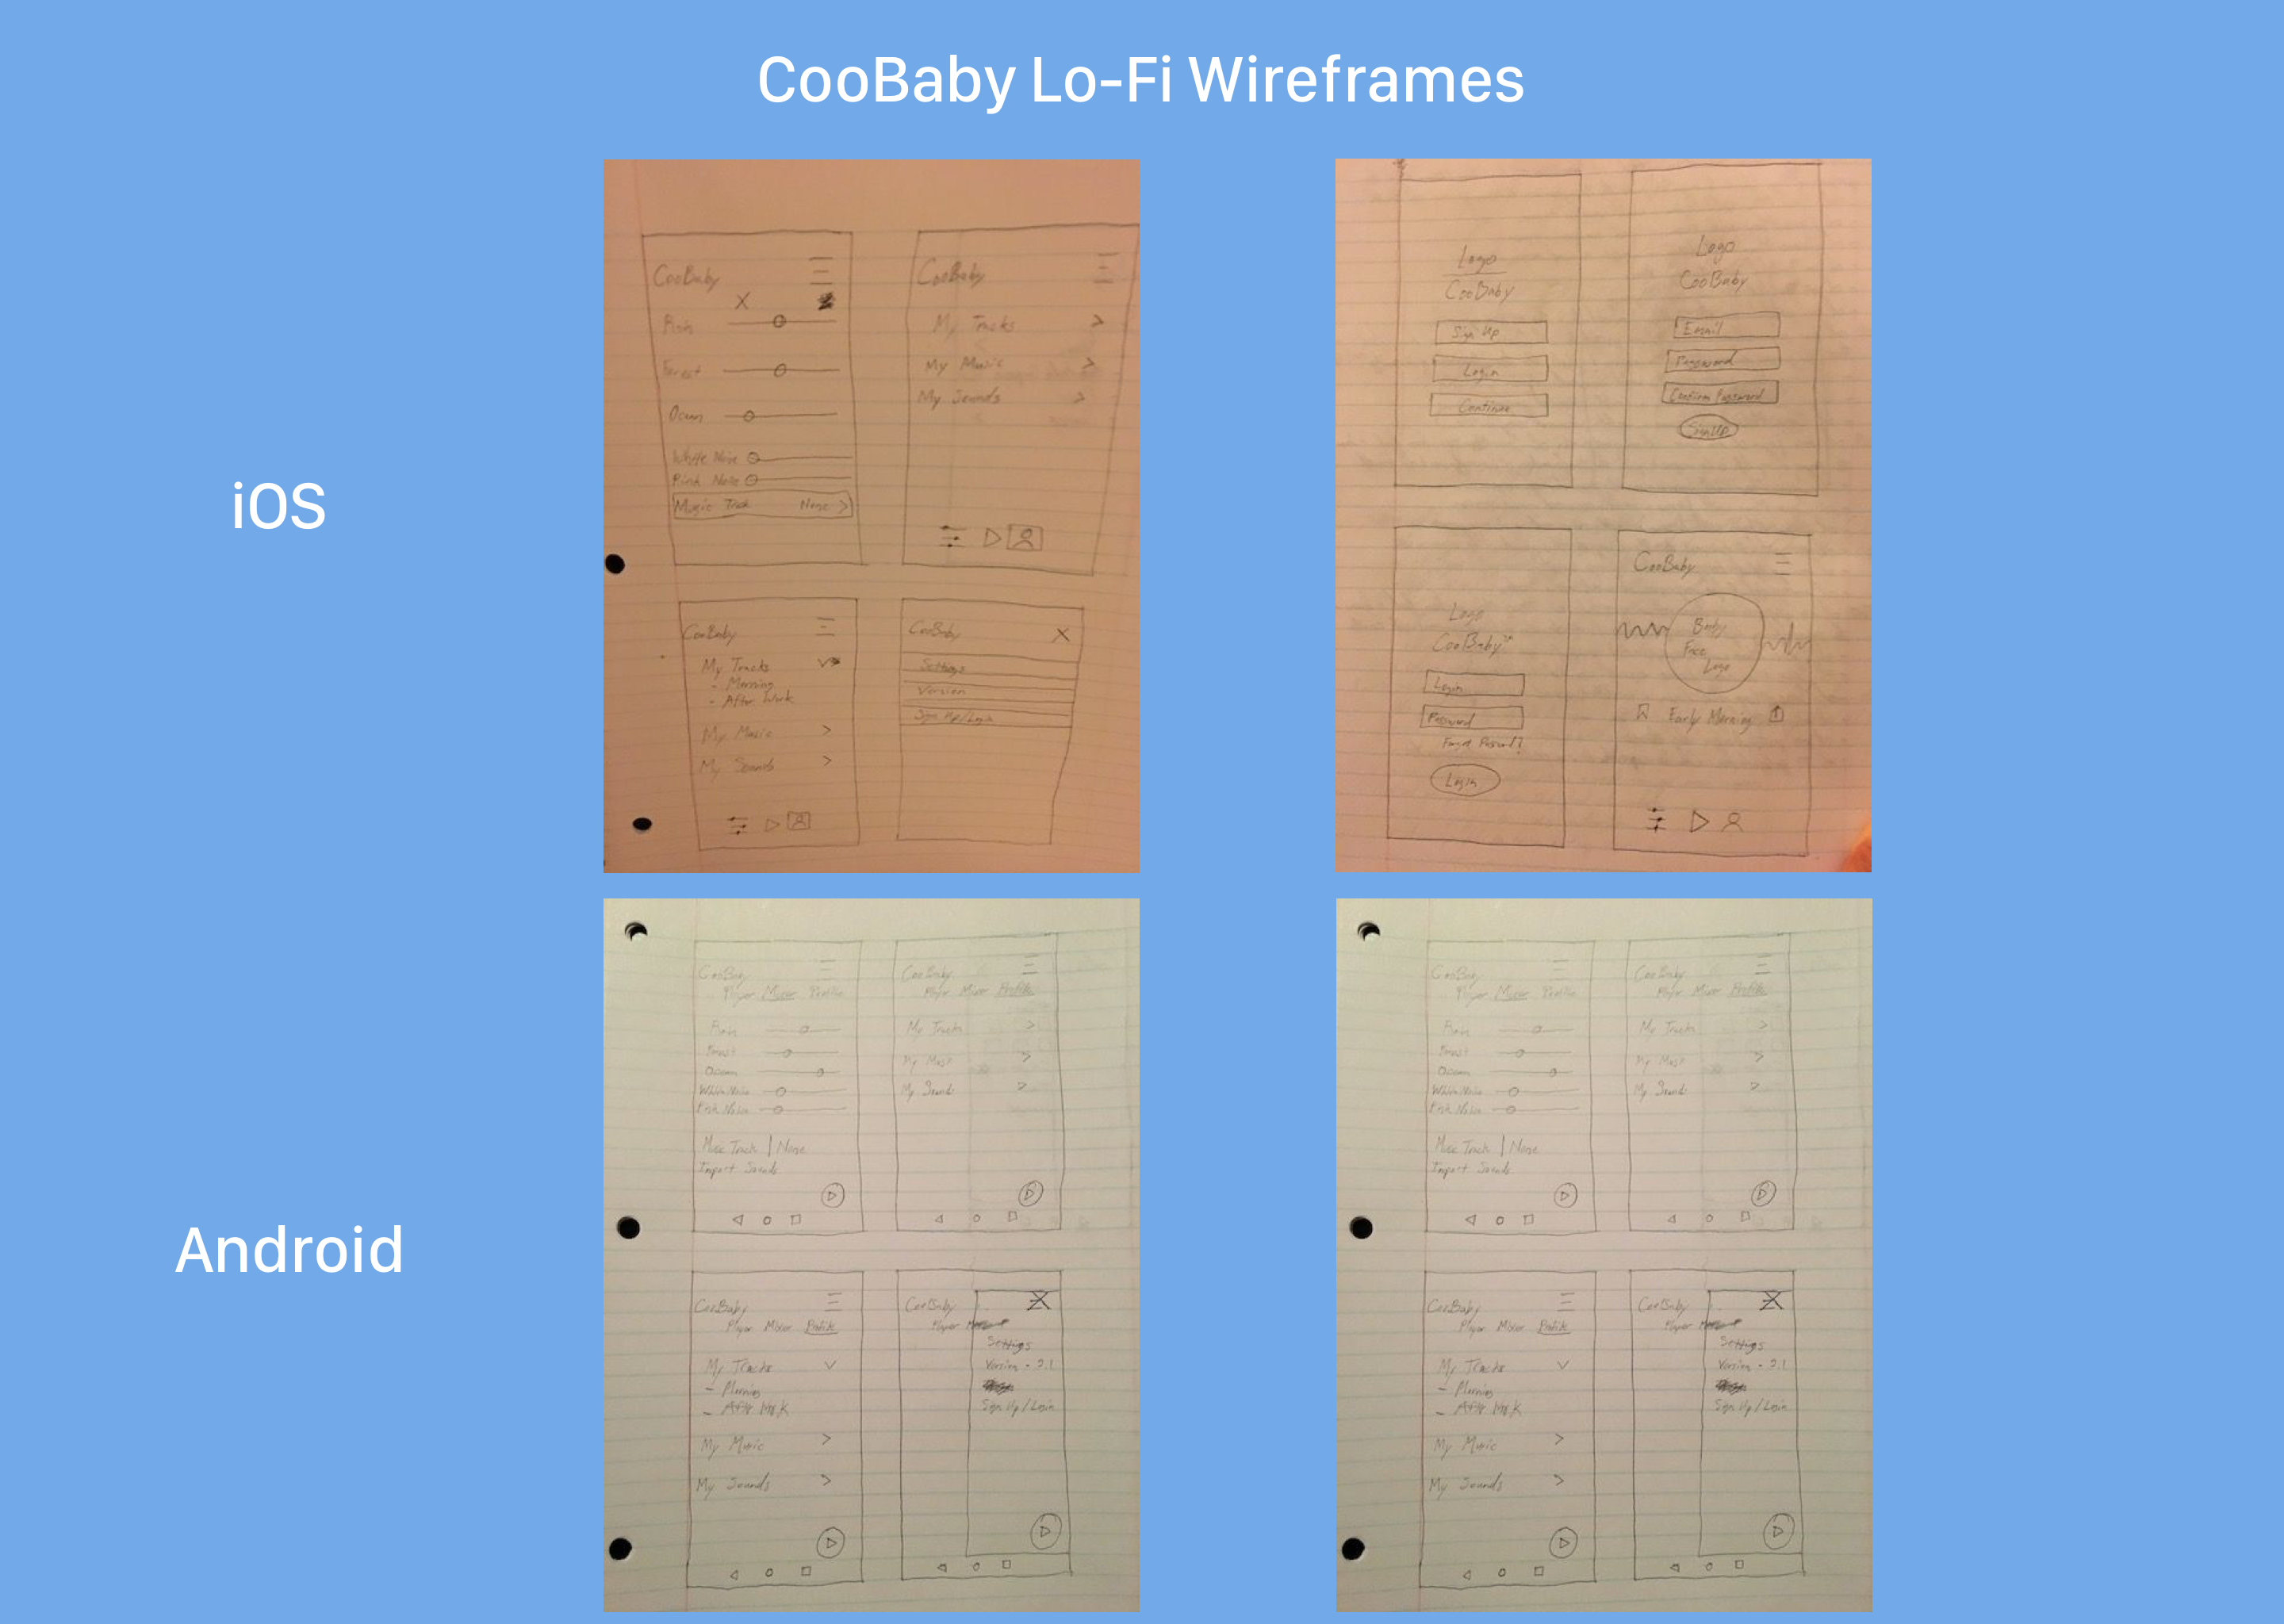 CooBaby Lo-Fi Wireframes
iOS
CooBaby
X
Rain
Forest
Ocean
White Noise
Pink Noise
Music Track None >
CooBaby
My Tracks >
My Music >
My Sounds >
CooBaby
My Tracks
- Morning
- After Work
My Music >
My Sounds >
CooBaby X
Settings
Version
Sign Up/Login
Logo
CooBaby
Sign Up
Login
Continue
Logo
CooBaby
Email
Password
Confirm Password
Sign Up
Logo
CooBaby
Login
Password
Forgot Password?
Login
CooBaby
Baby
Face
Logo
Early Morning
Android
CooBaby
Player Mixer Profile
Rain
Forest
Ocean
White Noise
Pink Noise
Music Track | None
Import Sounds
CooBaby
Player Mixer Profile
My Tracks >
My Music >
My Sounds >
CooBaby
Player Mixer Profile
My Tracks
- Morning
- After Work
My Music >
My Sounds >
CooBaby X
Player
Settings
Version - 2.1
Sign Up/Login
CooBaby
Player Mixer Profile
Rain
Forest
Ocean
White Noise
Pink Noise
Music Track | None
Import Sounds
CooBaby
Player Mixer Profile
My Tracks >
My Music >
My Sounds >
CooBaby
Player Mixer Profile
My Tracks
- Morning
- After Work
My Music >
My Sounds >
CooBaby X
Player
Settings
Version - 2.1
Sign Up/Login